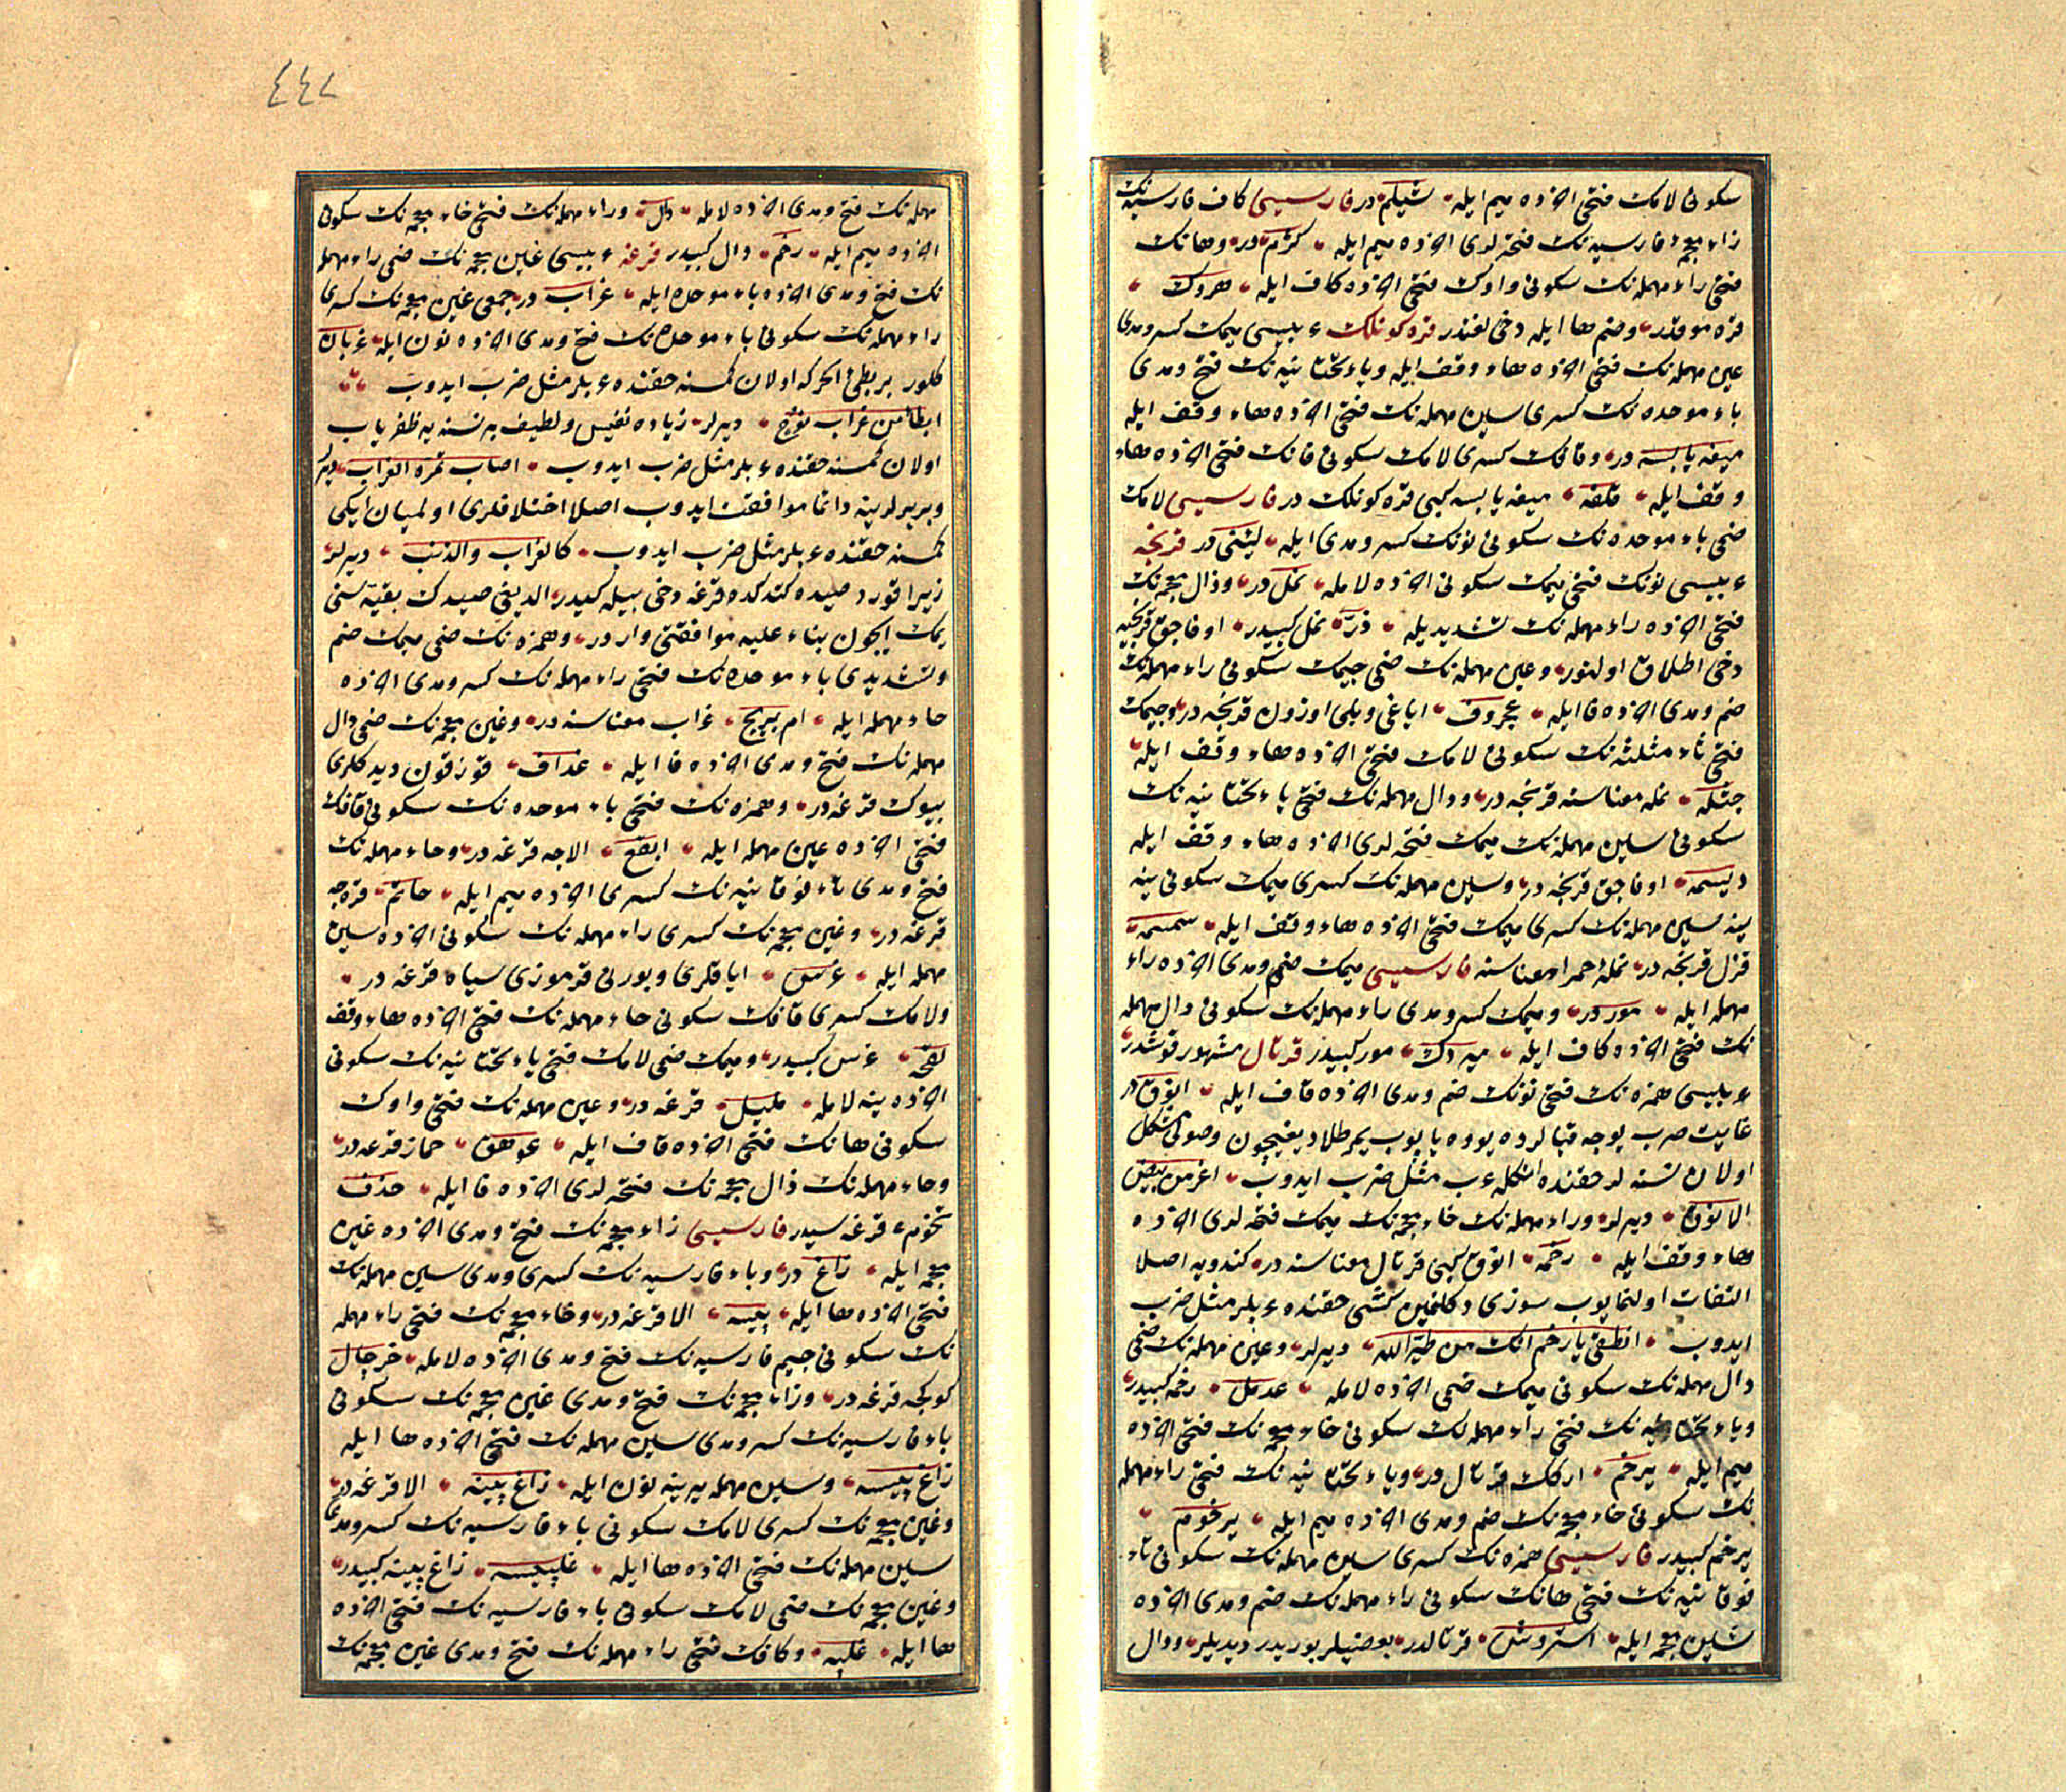 سكونى لامك فتحى اخرده ميم ايله شيلم در فارسيسى كاف فارسيه نك
زاء معجمۀ فارسيه نك فتحه لرى اخرده ميم ايله كژم در وهانك
فتحى راء مهمله نك سكونى واوك فتحى اخرده كاف ايله هروك
قره موقدر وضم ها ايله دخى لغتدر قره كوكلك عربيسى ميمك كسر ومدى
عين مهمله نك فتحى اخرده هاء وقف ايله وياء تحتانيه نك فتح ومدى
باء موحده نك كسرى سين مهمله نك فتحى اخرده هاء وقف ايله
ميعه يابسه در وقافك كسرى لامك سكونى فانك فتحى اخرده هاء
وقف ايله قلفه ميعه يابسه كبى قره كونلك در فارسيسى لامك
ضمى باء موحده نك سكونى نونك كسر ومدى ايله لبنى در قرنجه
عربيسى نونك فتحى ميمك سكونى اخرده لامله نمل در وذال معجمه نك
فتحى اخرده راء مهمله نك تشديديله ذر نمل كبيدر اوفاجق قرنجيه
دخى اطلاق اولنور وعين مهمله نك ضمى جيمك سكونى راء مهمله نك
ضم ومدى اخرده فا ايله عجروف اياغى وبلى اوزون قرنجه در وجيمك
فتحى ثاء مثلثه نك سكونى لامك فتحى اخرده هاء وقف ايله
جثله نمله معناسنه قرنجه در ودال مهمله نك فتحى ياء تحتانيه نك
سكونى سين مهمله نك ميمك فتحه لرى اخرده هاء وقف ايله
ديسمه اوفاجق قرنجه در وسين مهمله نك كسرى ميمك سكونى ينه
ينه سين مهمله نك كسرى ميمك فتحى اخرده هاء وقف ايله سمسمه
قزل قرنجه در نملۀ حمراء معناسنه فارسيسى ميمك ضم ومدى اخرده راء
مهمله ايله مور در وميمك كسر ومدى راء مهمله نك سكونى دال مهمله
نك فتحى اخرده كاف ايله ميردك مور كبيدر قرتال مشهور قوشدر
عربيسى همزه نك فتحى نونك ضم ومدى اخرده قاف ايله انوق در
غايت صرب يوجه قيالرده يووه ياپوب يمرطلاديغيچون وصولى مشكل
اولان نسنه لر حقنده انكله عرب مثل ضرب ايدوب اعز من بيض
الانوق ديرلر وراء مهمله نك خاء معجمه نك ميمك فتحه لرى اخرده
هاء وقف ايله رخمه انوق كبى قرتال معناسنه در كندويه اصلا
التفات اولنمايوب سوزى دكلنمين كشى حقنده عربلر مثل ضرب
ايدوب انطقى يا رخم انك من طير الله ديرلر وعين مهمله نك ضمى
دال مهمله نك سكونى ميمك ضمى اخرده لامله عدمل رخمه كبيدر
وياء تحتانيه نك فتحى راء مهمله نك سكونى خاء معجمه نك فتحى اخرده
ميم ايله يرخم اركك قرتال در وياء تحتانيه نك فتحى راء مهمله
نك سكونى خاء معجمه نك ضم ومدى اخرده ميم ايله يرخوم
يرخم كبيدر فارسيسى همزه نك كسرى سين مهمله نك سكونى تاء
فوقانيه نك فتحى هانك سكونى راء مهمله نك ضم ومدى اخرده
شين معجمه ايله استروش قرتالدر بعضيلر بوريدر ديديلر ودال
٤٤٧
مهمله نك فتح ومدى اخرده لامله دال وراء مهمله نك فتحى خاء معجمه نك سكونى
اخرده ميم ايله رخم دال كبيدر قرغه عربيسى غين معجمه نك ضمى راء مهمله
نك فتح ومدى اخرده باء موحده ايله غراب در جمعى غين معجمه نك كسرى
راء مهمله نك سكونى باء موحده نك فتح ومدى اخرده نون ايله غربان
كلور بر بطئ الحركه اولان كمسنه حقنده عربلر مثل ضرب ايدوب
ابطأ من غراب نوح ديرلر زياده نفيس ولطيف بر نسنه يه ظفرياب
اولان كمسنه حقنده عربلر مثل ضرب ايدوب اصاب تمرة الغراب ديرلر
وبربرلرينه دائما موافقت ايدوب اصلا اختلافلرى اولميان ايكى
كمسنه حقنده عربلر مثل ضرب ايدوب كالغراب والذئب ديرلر
زيرا قورد صيده كتدكده قرغه دخى بيله كيدر الديغى صيدك بقيه سنى
يمك ايچون بناء عليه موافقتى واردر وهمزه نك ضمى ميمك ضم
وتشديدى باء موحده نك فتحى راء مهمله نك كسر ومدى اخرده
حاء مهمله ايله ام بريح غراب معناسنه در وغين معجمه نك ضمى دال
مهمله نك فتح ومدى اخرده فا ايله غداف قوزقون ديدكلرى
بيوك قرغه در وهمزه نك فتحى باء موحده نك سكونى قافك
فتحى اخرده عين مهمله ايله ابقع الاجه قرغه در وحاء مهمله نك
فتح ومدى تاء فوقانيه نك كسرى اخرده ميم ايله حاتم قره جه
قرغه در وغين معجمه نك كسرى راء مهمله نك سكونى اخرده سين
مهمله ايله غرس اياقلرى وبورنى قرموزى سياه قرغه در
ولامك كسرى قافك سكونى حاء مهمله نك فتحى اخرده هاء وقف
لقحه غرس كبيدر وميمك ضمى لامك فتحى ياء تحتانيه نك سكونى
اخرده ينه لامله مليل قرغه در وعين مهمله نك فتحى واوك
سكونى هانك فتحى اخرده قاف ايله عوهق حماز قرغه در
وحاء مهمله نك ذال معجمه نك فتحه لرى اخرده فا ايله حذف
قرغه سيدر فارسيسى زاء معجمه نك فتح ومدى اخرده غين
معجمه ايله زاغ در وباء فارسيه نك كسرى ومدى سين مهمله نك
فتحى اخرده ها ايله پيسه الا قرغه در وخاء معجمه نك فتحى راء مهمله
نك سكونى جيم فارسيه نك فتح ومدى اخرده لامله خرچال
كوكجه قرغه در وزاء معجمه نك فتح ومدى غين معجمه نك سكونى
باء فارسيه نك كسر ومدى سين مهمله نك فتحى اخرده ها ايله
زاغ پيسه وسين مهمله يرينه نون ايله زاغ پينه الا قرغه در
وغين معجمه نك كسرى لامك سكونى باء فارسيه نك كسر ومدى
سين مهمله نك فتحى اخرده ها ايله غلپيسه زاغ پينه كبيدر
وغين معجمه نك ضمى لامك سكونى باء فارسيه نك فتحى اخرده
ها ايله غلپه وكافك فتحى راء مهمله نك فتح ومدى غين معجمه نك